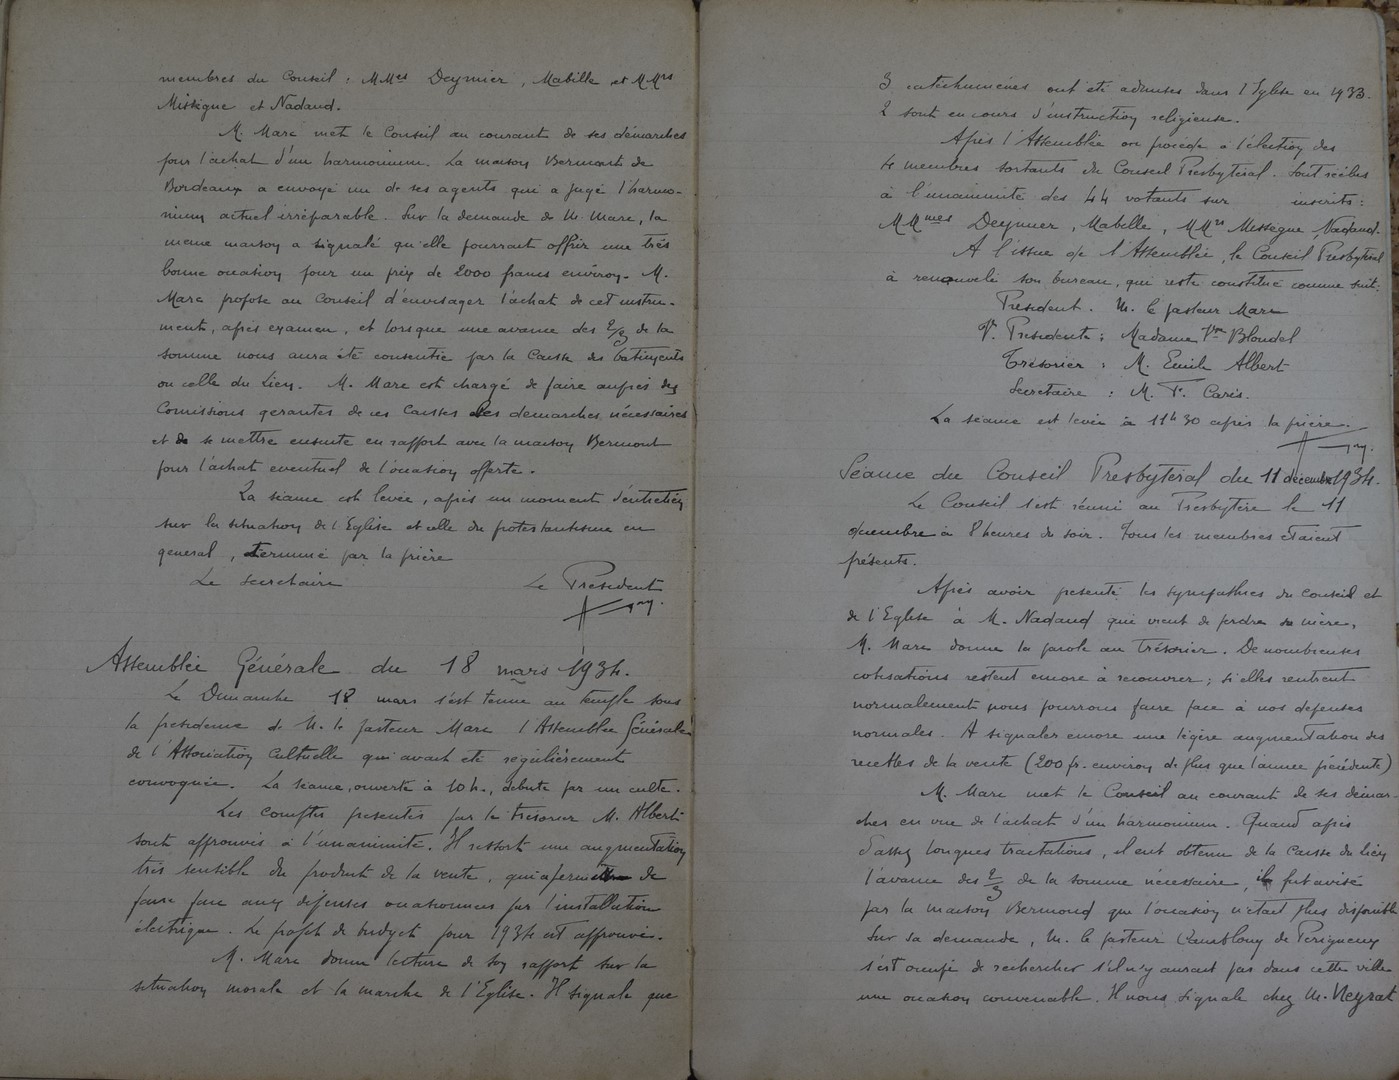 membres du Conseil : MMes Deymier, Mabille et MMrs
Missègue et Nadaud.
M. Marc met le Conseil au courant de ses démarches
pour l'achat d'un harmonium. La maison Bermont de
Bordeaux a envoyé un de ses agents qui a jugé l'harmo-
nium actuel irréparable. Sur la demande de M. Marc, la
même maison a signalé qu'elle pourrait offrir une très
bonne occasion pour un prix de 2000 francs environ. M.
Marc propose au Conseil d'envisager l'achat de cet instru-
ment, après examen, et lorsque une avance des 2/3 de la
somme nous aura été consentie par la Caisse des batiments
ou celle du Lien. M. Marc est chargé de faire auprès des
Comissions gérantes de ces Caisses les démarches nécessaires
et de se mettre ensuite en rapport avec la maison Bermont
pour l'achat eventuel de l'occasion offerte.
La séance est levée, après un moment d'entretien
sur la situation de l'Eglise et celle du protestantisme en
general, terminé par la prière
Le Secrétaire Le President
Assemblée Générale du 18 mars 1934.
Le Dimanche 18 mars s'est tenue au temple sous
la presidence de M. le pasteur Marc l'Assemblée Générale
de l'Association Cultuelle qui avait été régulièrement
convoquée. La séance, ouverte à 10 h., débute par un culte.
Les comptes presentés par le trésorier M. Albert
sont approuvés à l'unanimité. Il ressort une augmentation
très sensible du produit de la vente, qui a permis de
faire face aux dépenses occasionnées par l'installation
électrique. Le projet de budget pour 1934 est approuvé.
M. Marc donne lecture de son rapport sur la
situation morale et la marche de l'Eglise. Il signale que
3 catéchumènes ont été admises dans l'Eglise en 1933.
2 sont en cours d'instruction religieuse.
Après l'Assemblée on procède à l'élection des
4 membres sortants du Conseil Presbytéral. Sont réélus
à l'unanimité des 44 votants sur inscrits :
MMmes Deymier, Mabille, MMrs Missègue Nadaud.
A l'issue de l'Assemblée, le Conseil Presbytéral
à renouvelé son bureau, qui reste constitué comme suit :
President . M. le pasteur Marc
V. Presidente : Madame Vve Blondel
Trésorier : M. Emile Albert
Secretaire : M. F. Caris.
La séance est levée à 11h 30 après la prière.
Séance du Conseil Presbytéral du 11 décembre 1934.
Le Conseil s'est réuni au Presbytère le 11
decembre à 8 heures du soir. Tous les membres étaient
présents.
Après avoir présenté les sympathies du Conseil et
de l'Eglise à M. Nadaud qui vient de perdre sa mère,
M. Marc donne la parole au Trésorier. De nombreuses
cotisations restent encore à recouvrer ; si elles rentrent
normalement nous pourrons faire face à nos dépenses
normales. A signaler encore une légère augmentation des
recettes de la vente (200 fr. environ de plus que l'année précédente)
M. Marc met le Conseil au courant de ses démar-
ches en vue de l'achat d'un harmonium. Quand après
d'assez longues tractations, il eut obtenu de la Caisse du Lien
l'avance des 2/3 de la somme nécessaire, il fut avisé
par la maison Bermond que l'occasion n'était plus disponible
Sur sa demande, M. le pasteur Camblong de Périgueux
s'est occupé de rechercher s'il n'y aurait pas dans cette ville
une occasion convenable. Il nous signale chez M. Neyrat